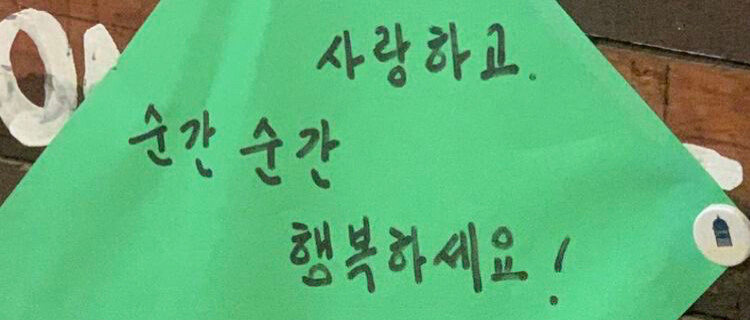 사랑하고.
순간 순간
행복하세요!